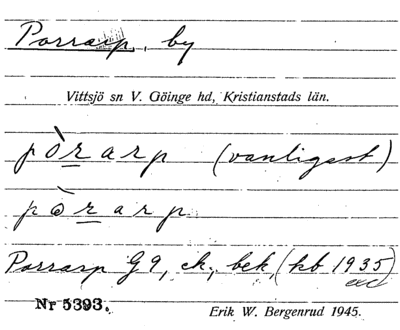 Porrarp, by
Vittsjö sn V. Göinge hd, Kristianstads län.
pòrarp (vanligast)
pòrarp
Porrarp G9, ek, bek, (kb 1935)
Nr 5393.
Erik W. Bergenrud 1945.